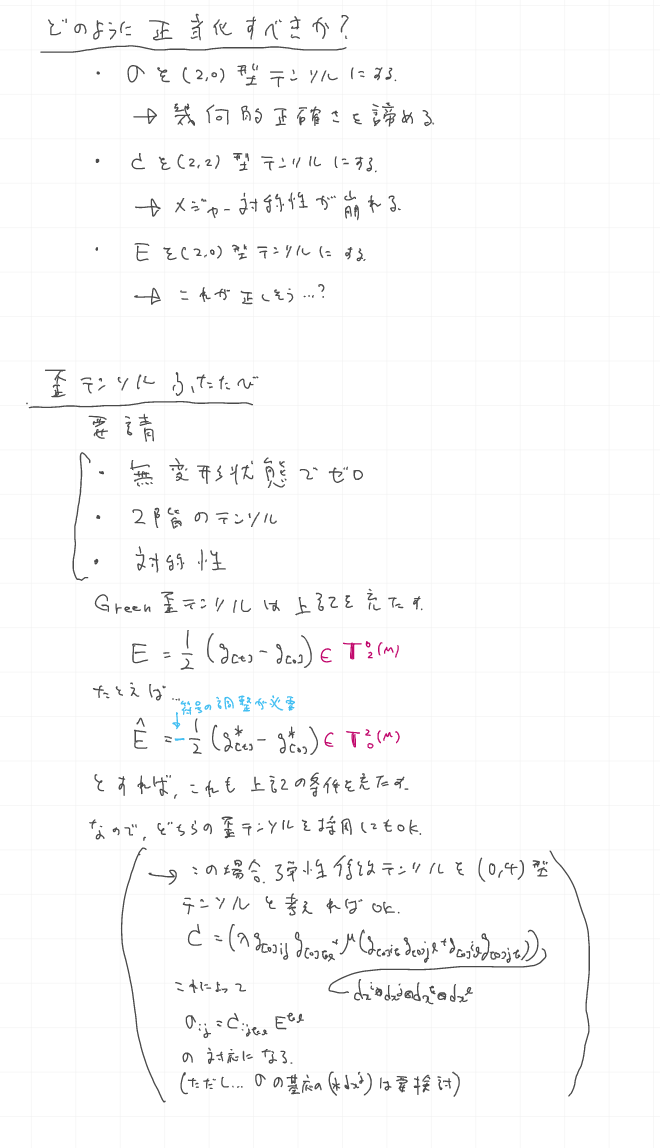 どのように正式化すべきか?
・ σを(2,0)型テンソルにする.
→ 幾何的正確さを諦める
・ Cを(2,2)型テンソルにする.
→ メジャー対称性が崩れる.
・ Eを(2,0)型テンソルにする
→ これが正しそう…?
歪テンソルふたたび
要請
・ 無変形状態でゼロ
・ 2階のテンソル
・ 対称性
Green歪テンソルは上記を充たす.
E = 1/2 (g[t] - g[0]) ∈ T⁰₂(M)
たとえば…
符号の調整が必要
Ê = -1/2 (g*[t] - g*[0]) ∈ T²₀(M)
とすれば, これも上記の条件を充たす.
なので, どちらの歪テンソルを採用してもOK.
→ この場合, 弾性係数テンソルを(0,4)型
テンソルと考えればOK.
C = (λg[0]ij g[0]kl + μ(g[0]ik g[0]jl + g[0]il g[0]jk))
dxⁱ⊗dxʲ⊗dxᵏ⊗dxˡ
これによって
σij = Cijkl Eᵏˡ
の対応になる.
(ただし… σの基底の(*dxʲ)は要検討)